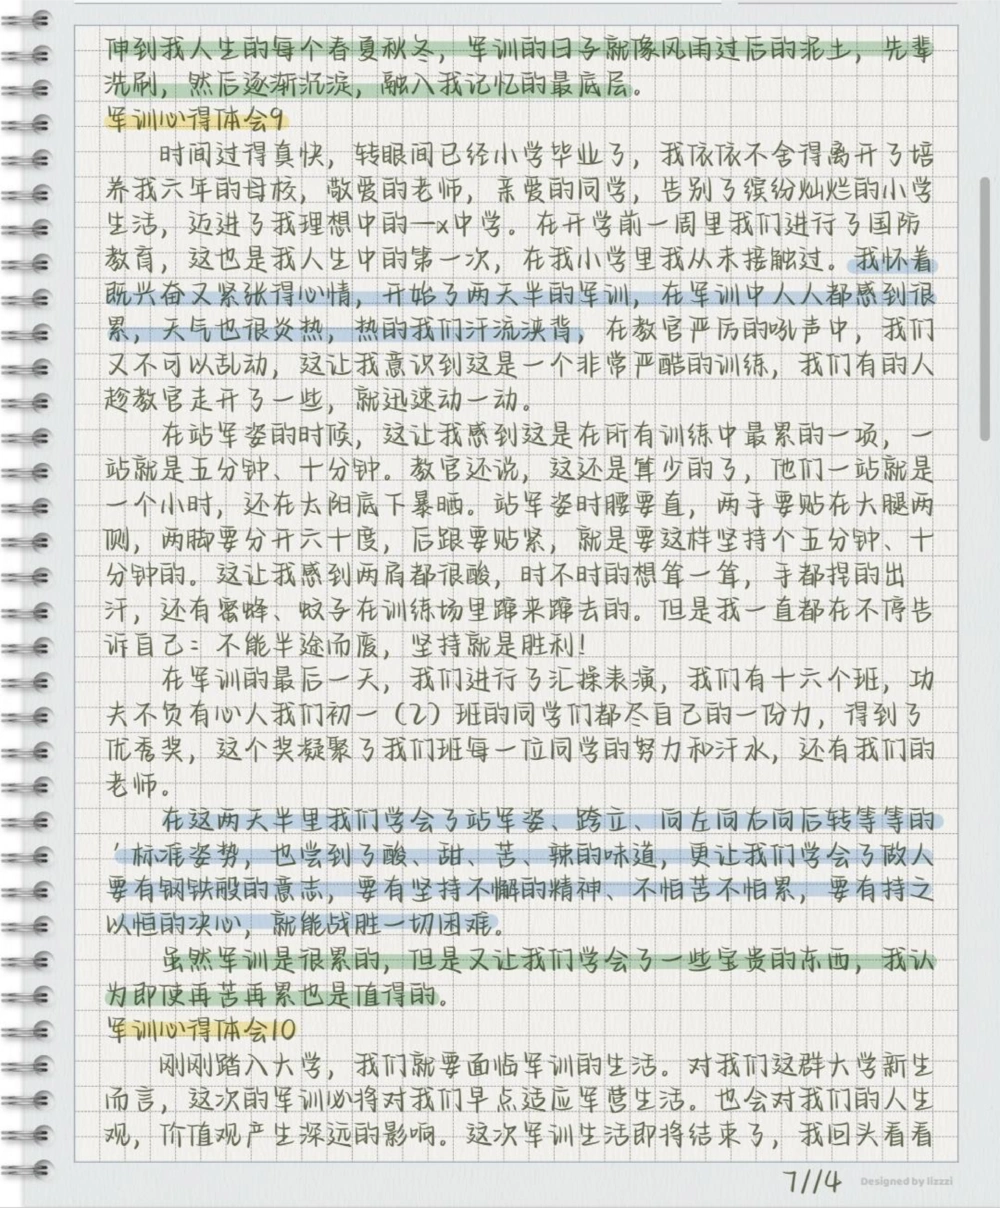 伸到我人生的每个春夏秋冬，军训的日子就像风雨过后的泥土，先辈
洗刷，然后逐渐沉淀，融入我记忆的最底层。
军训心得体会9
时间过得真快，转眼间已经小学毕业了，我依依不舍得离开了培
养我六年的母校，敬爱的老师，亲爱的同学，告别了缤纷灿烂的小学
生活，迈进了我理想中的一x中学。在开学前一周里我们进行了国防
教育，这也是我人生中的第一次，在我小学里我从未接触过。我怀着
既兴奋又紧张得心情，开始了两天半的军训，在军训中人人都感到很
累，天气也很炎热，热的我们汗流浃背，在教官严厉的吼声中，我们
又不可以乱动，这让我意识到这是一个非常严酷的训练，我们有的人
趁教官走开了一些，就迅速动一动。
在站军姿的时候，这让我感到这是在所有训练中最累的一项，一
站就是五分钟、十分钟。教官还说，这还是算少的了，他们一站就是
一个小时，还在太阳底下暴晒。站军姿时腰要直，两手要贴在大腿两
侧，两脚要分开六十度，后跟要贴紧，就是要这样坚持个五分钟、十
分钟的。这让我感到两肩都很酸，时不时的想耸一耸，手都捏的出
汗，还有蜜蜂、蚊子在训练场里蹿来蹿去的。但是我一直都在不停告
诉自己：不能半途而废，坚持就是胜利！
在军训的最后一天，我们进行了汇操表演，我们有十六个班，功
夫不负有心人我们初一（2）班的同学们都尽自己的一份力，得到了
优秀奖，这个奖凝聚了我们班每一位同学的努力和汗水，还有我们的
老师。
在这两天半里我们学会了站军姿、跨立、向左向右向后转等等的
＇标准姿势，也尝到了酸、甜、苦、辣的味道，更让我们学会了做人
要有钢铁般的意志，要有坚持不懈的精神、不怕苦不怕累，要有持之
以恒的决心，就能战胜一切困难。
虽然军训是很累的，但是又让我们学会了一些宝贵的东西，我认
为即使再苦再累也是值得的。
军训心得体会10
刚刚踏入大学，我们就要面临军训的生活。对我们这群大学新生
而言，这次的军训必将对我们早点适应军营生活。也会对我们的人生
观，价值观产生深远的影响。这次军训生活即将结束了，我回头看看
7//4
Designed by lizzzi